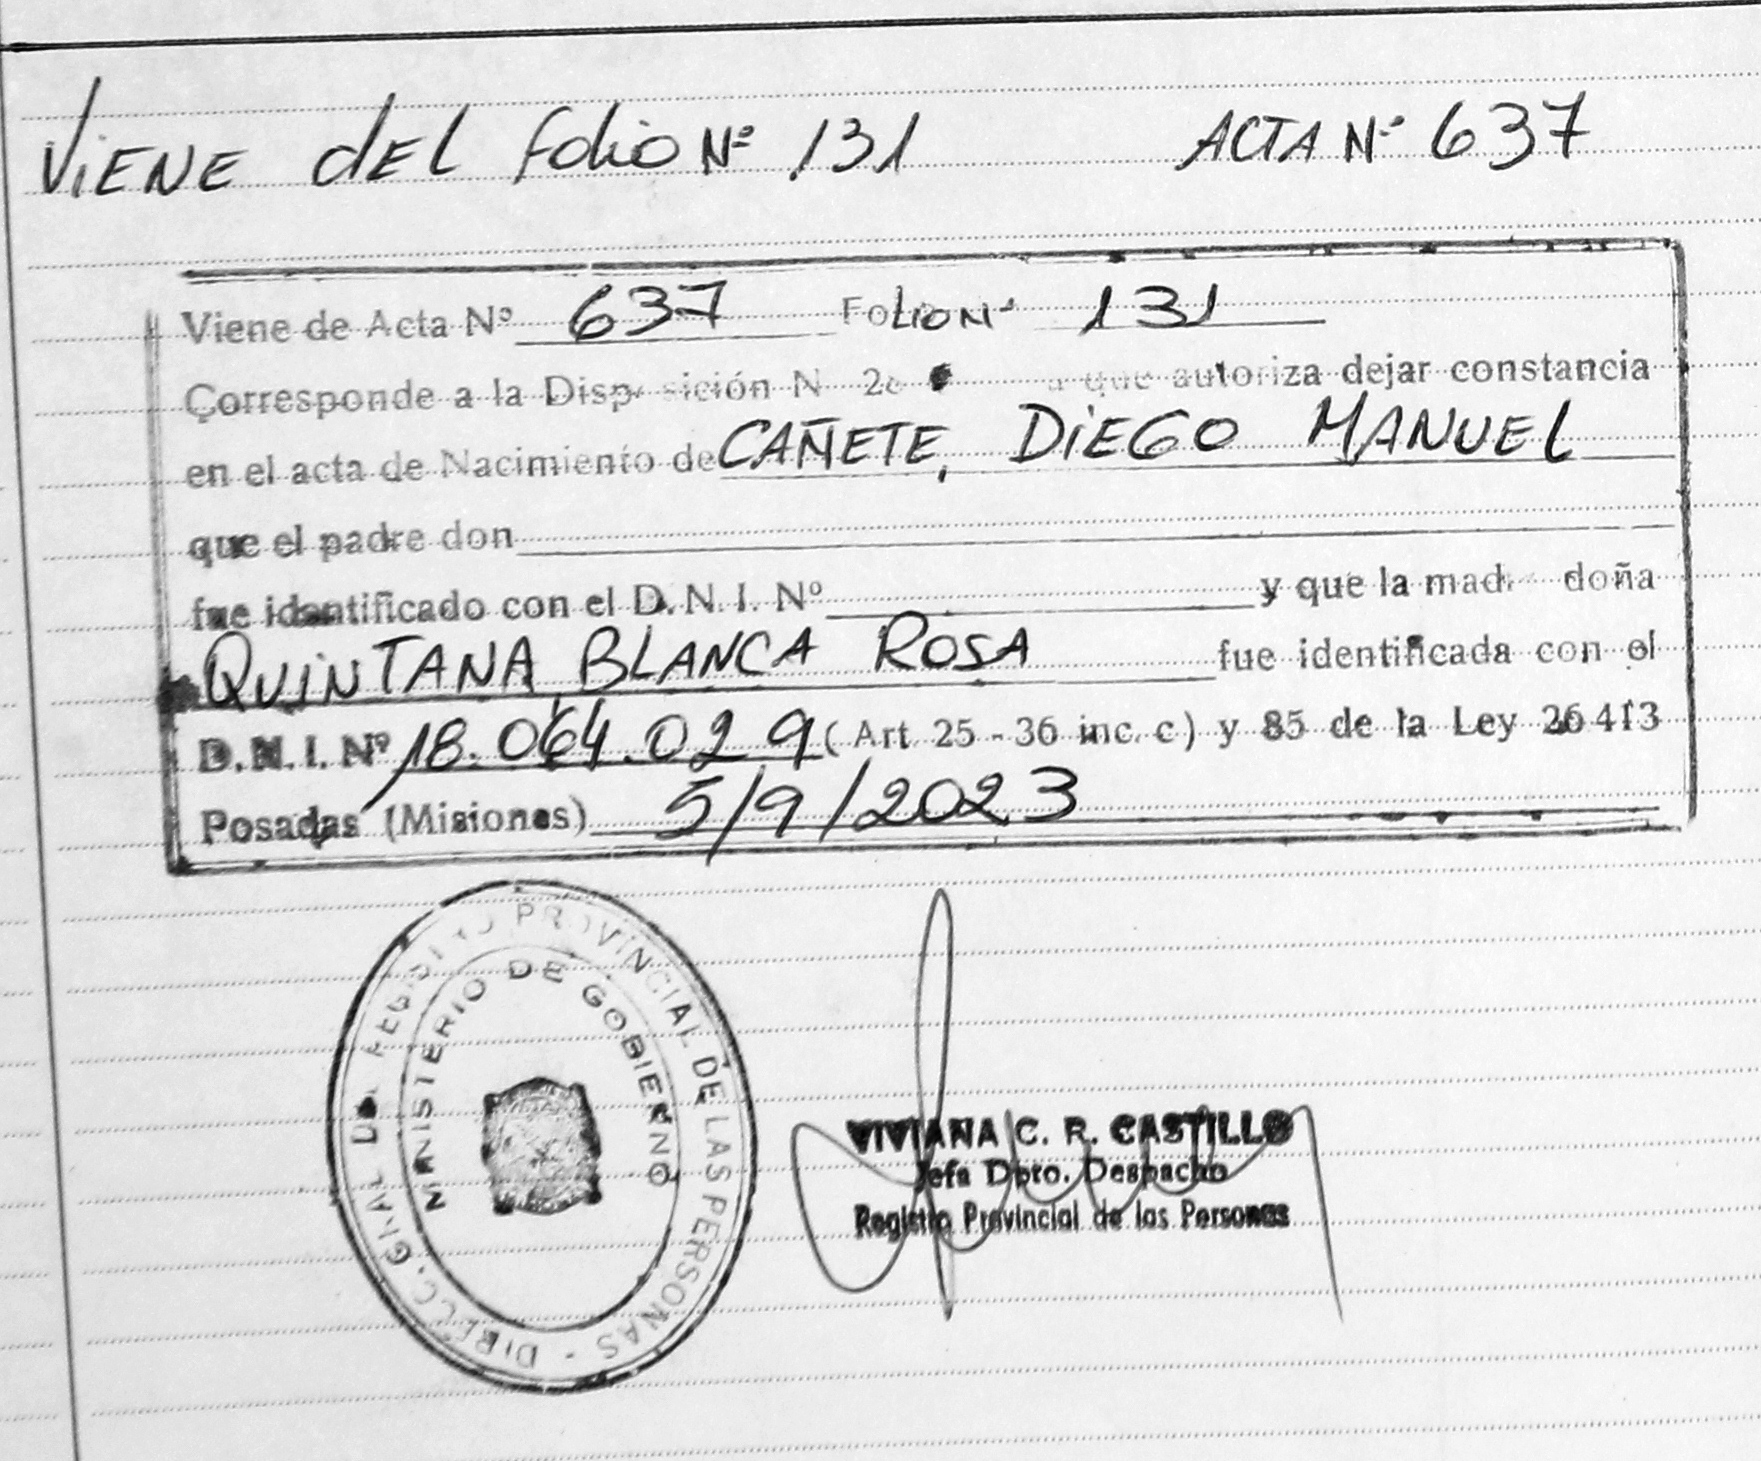 ViENE dEL foLio Nº 131 ACTA Nº 637
Viene de Acta Nº 637 FOLIO Nº 131
Corresponde a la Disposición N que autoriza dejar constancia
en el acta de Nacimiento de CAÑETE, DiEGO MANUEL
que el padre don
fue identificado con el D. N. I. Nº y que la mad doña
QUiNTANA, BLANCA ROSA fue identificada con el
D. N. I. Nº 18.064.029 (Art 25 - 36 inc. c) y 85 de la Ley 26413
Posadas (Misiones) 5/9/2023
DIRECC. GRAL DE REGISTRO PROVINCIAL DE LAS PERSONAS -
MINISTERIO DE GOBIERNO
VIVIANA C. R. CASTILLO
Jefa Dpto. Despacho
Registro Provincial de las Personas